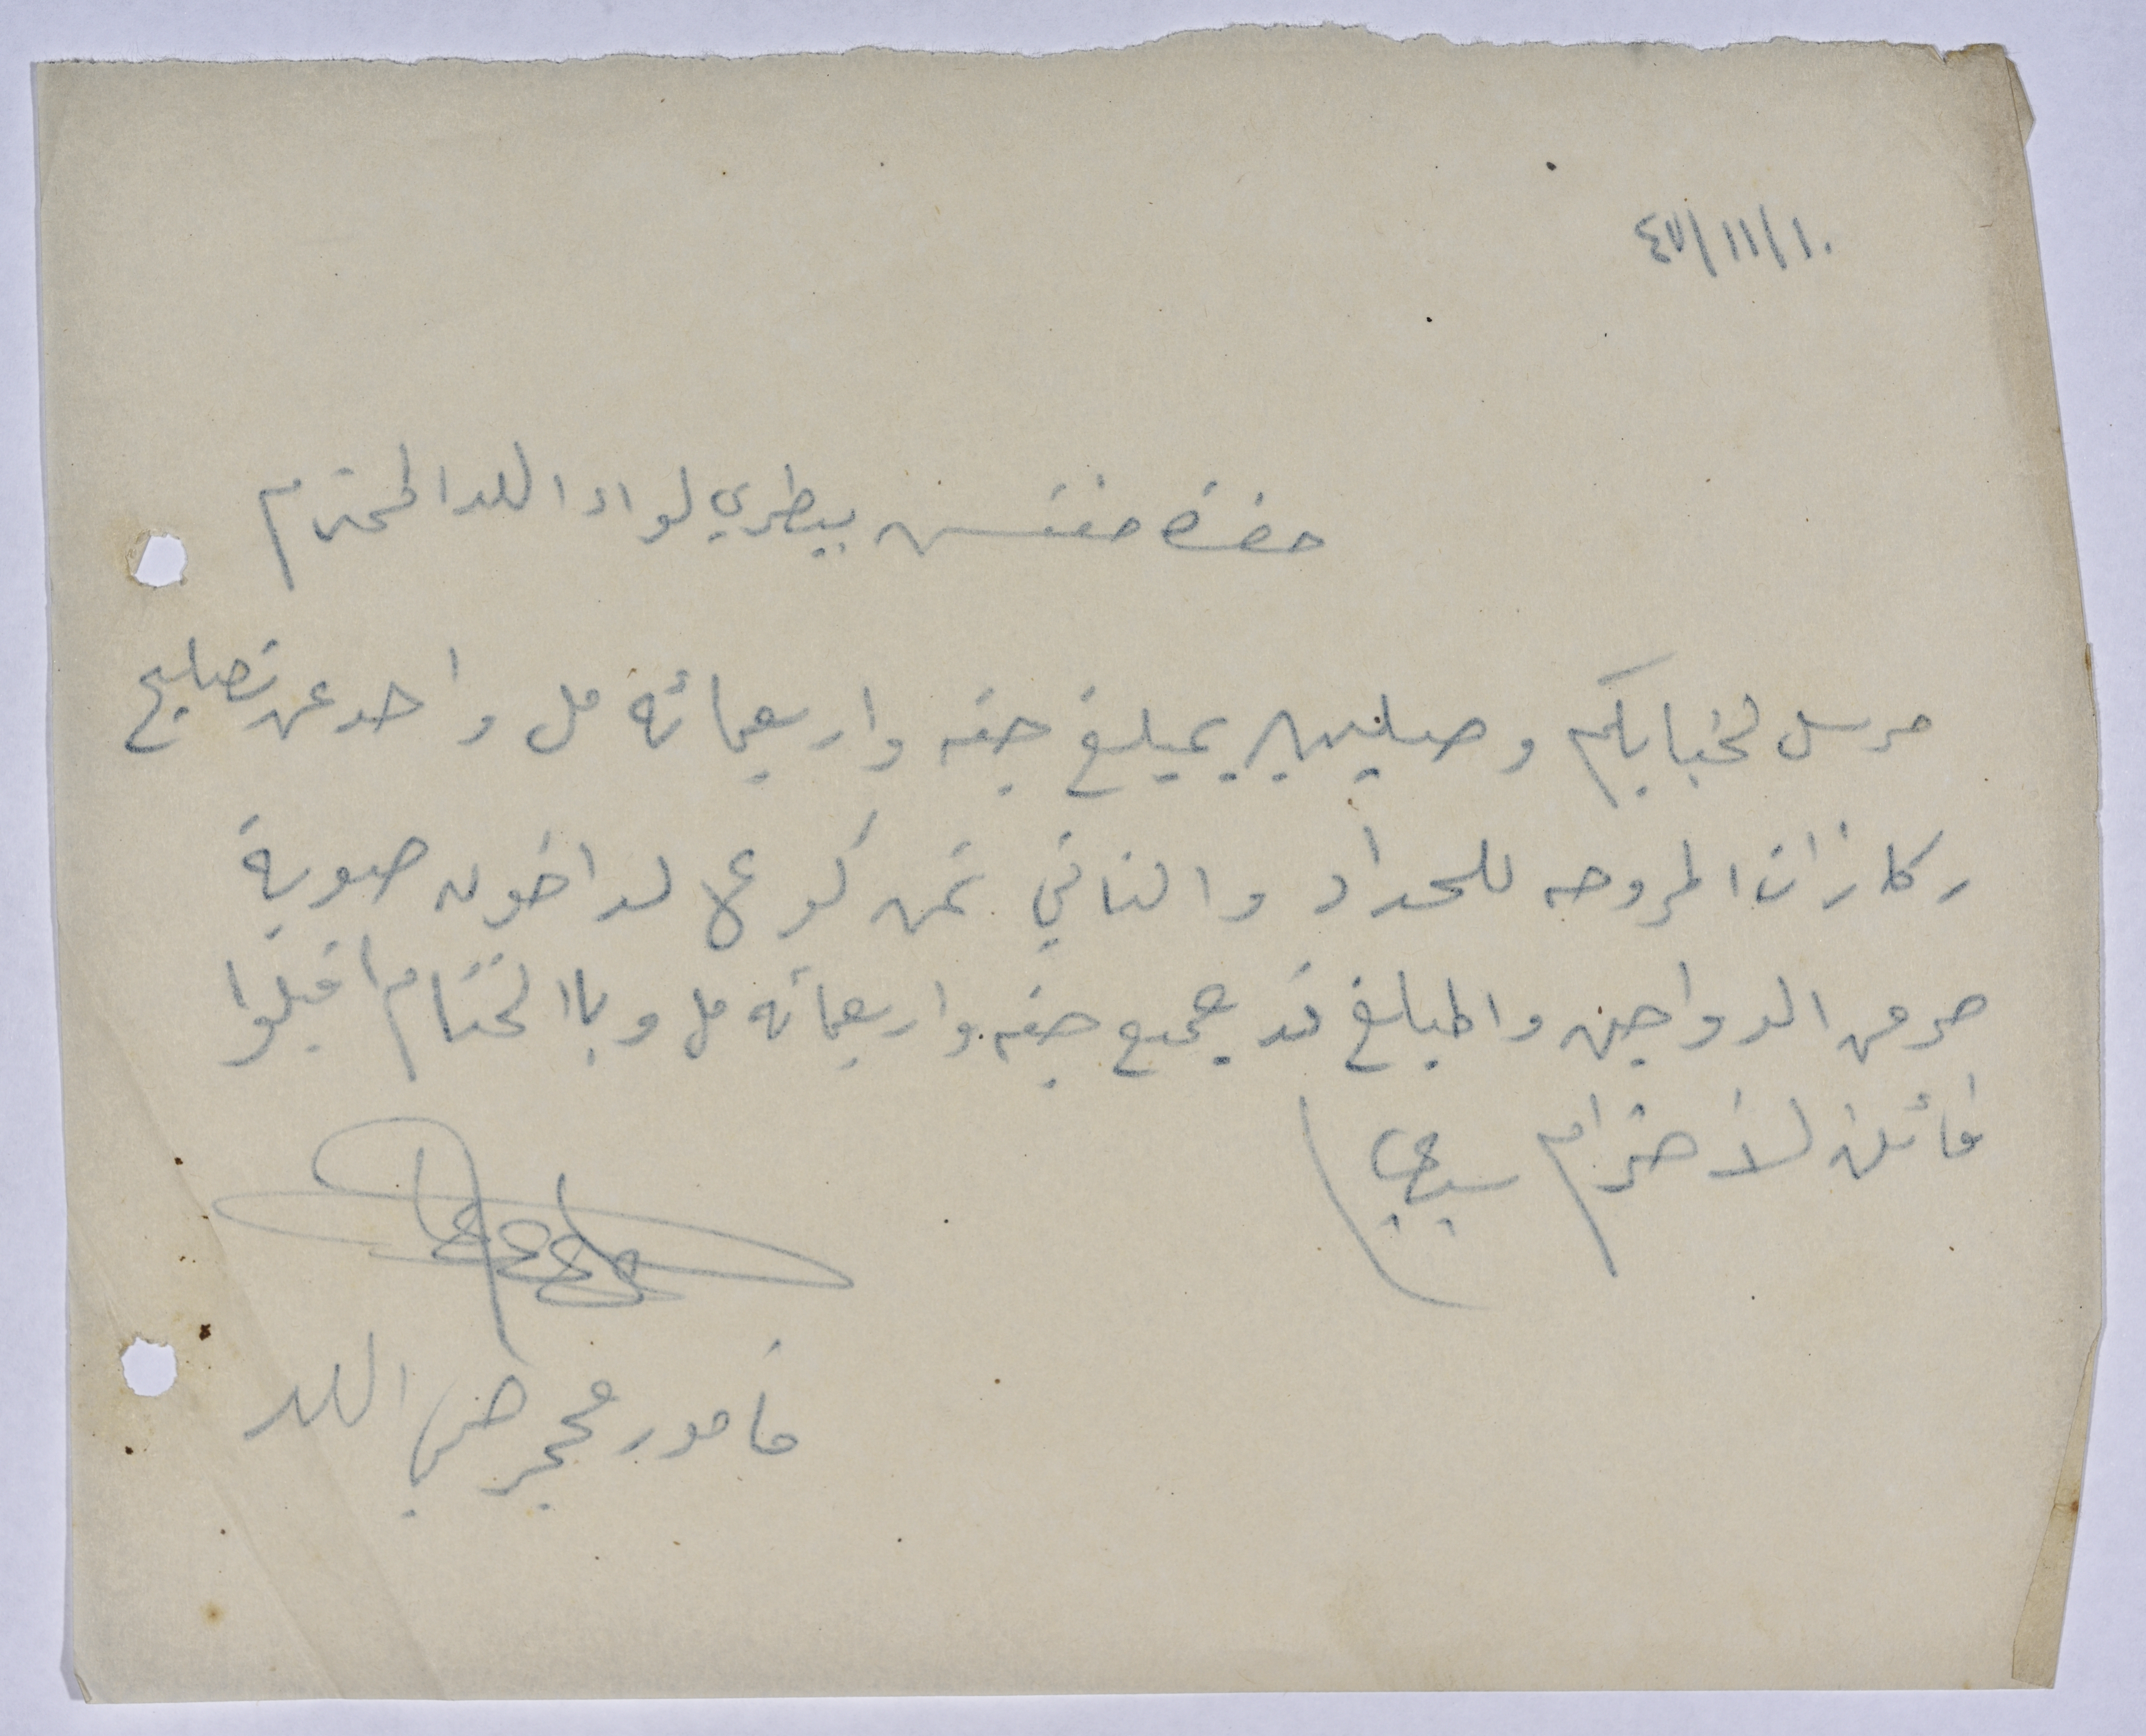 ٤٧/١١/١٠
حضرة مفتش بيطري لواء اللد المحترم
مرسل لجنابكم وصليين بمبلغ جنيه واربعمائة مل واحد عن تصليح
ركازات المروحه للحداد والثاني ثمن كوع لداخون صوبة
مرض الدواجن والمبلغ قد جميع جنيه واربعمائه مل وباالختام اقبلوا
فائق لاحترام سيدي
مأمور محجر صحي اللد